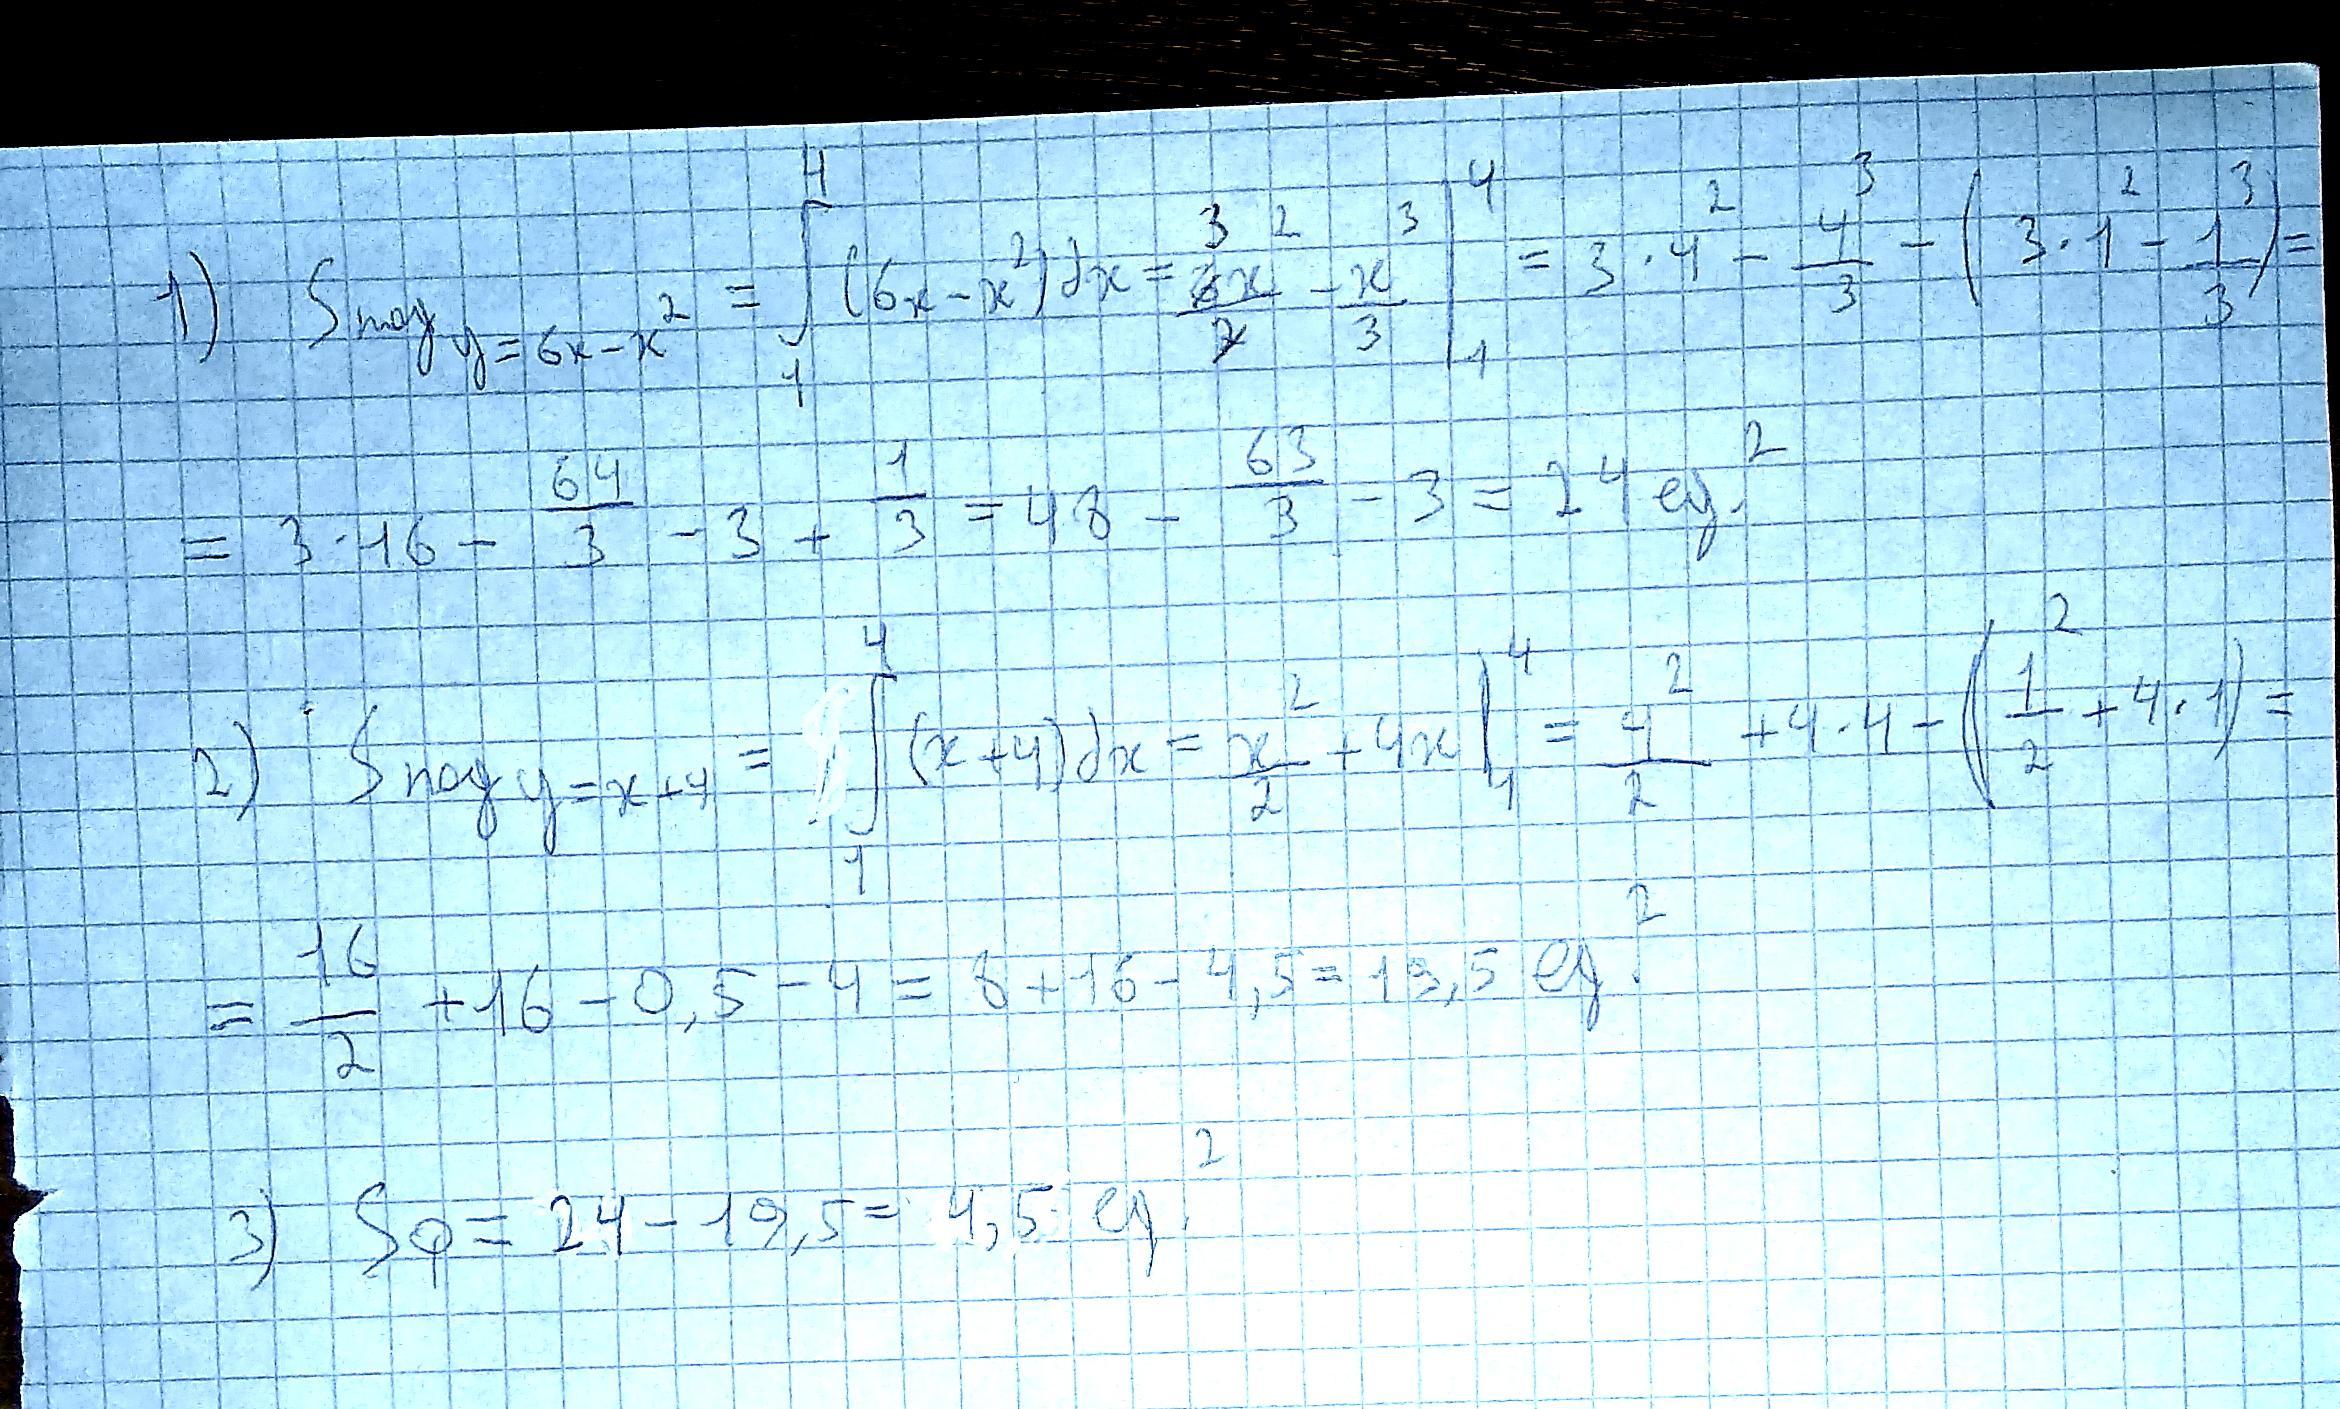 1) Sпод y=6x-x² = ∫₁⁴ (6x-x²)dx = 3 6x²/2 - x³/3 |₁⁴ = 3·4² - 4³/3 - (3·1² - 1³/3) =
= 3·16 - 64/3 - 3 + 1/3 = 48 - 63/3 - 3 = 24 ед.²
2) Sпод y=x+4 = ∫₁⁴ (x+4)dx = x²/2 + 4x |₁⁴ = 4²/2 + 4·4 - (1²/2 + 4·1) =
= 16/2 + 16 - 0,5 - 4 = 8 + 16 - 4,5 = 19,5 ед.²
3) Sф = 24 - 19,5 = 4,5 ед.²